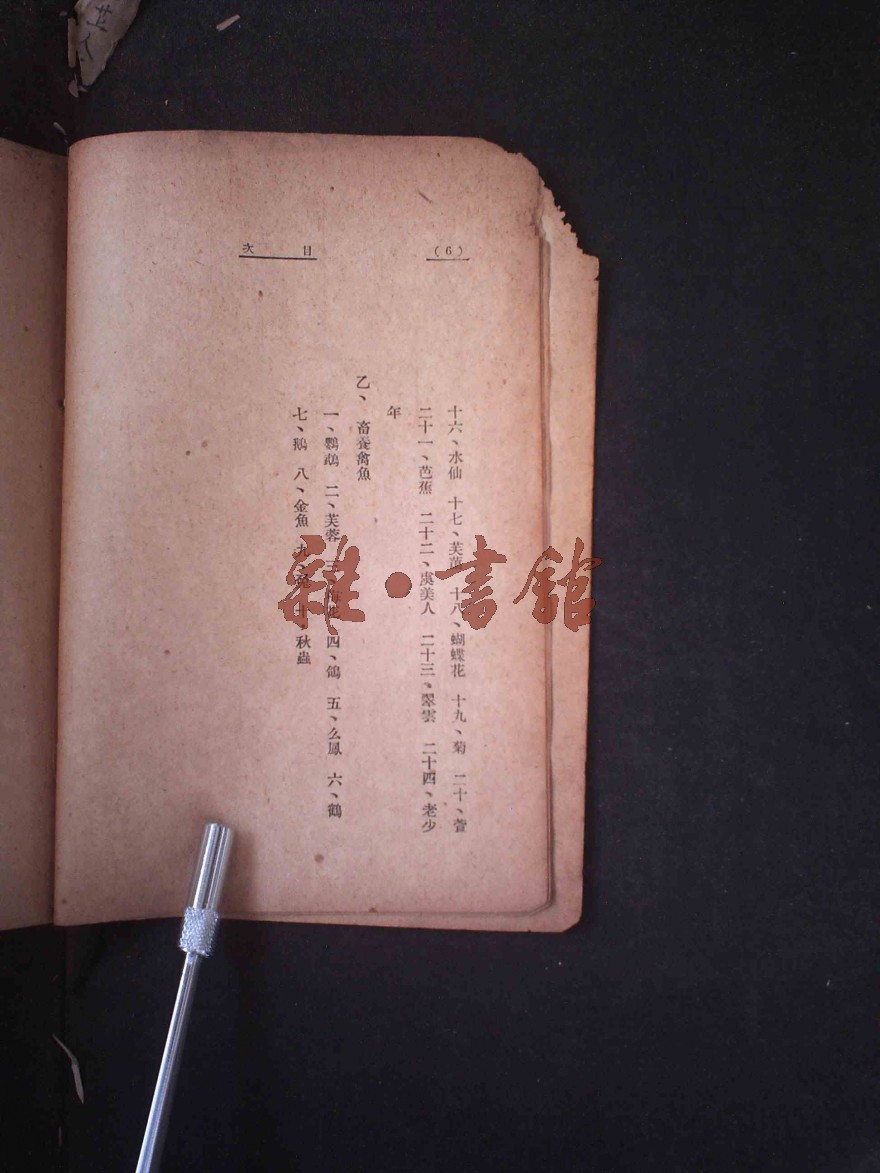 (6)
目 次
十六、水仙 十七、芙蕖 十八、蝴蝶花 十九、菊 二十、萱
二十一、芭蕉 二十二、虞美人 二十三、翠雲 二十四、老少
年
乙、畜養禽魚
一、鸚鵡 二、芙蓉 三、 四、鴿 五、么鳳 六、鶴
七、鵝 八、金魚 九、 十、秋蟲
雜·書館